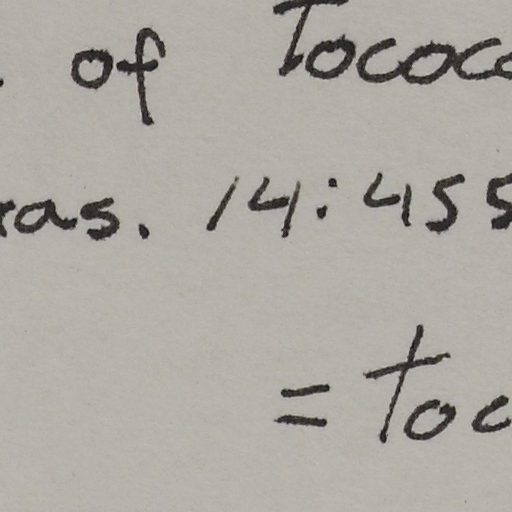 . of Tococo
ras. 14:455
= toc